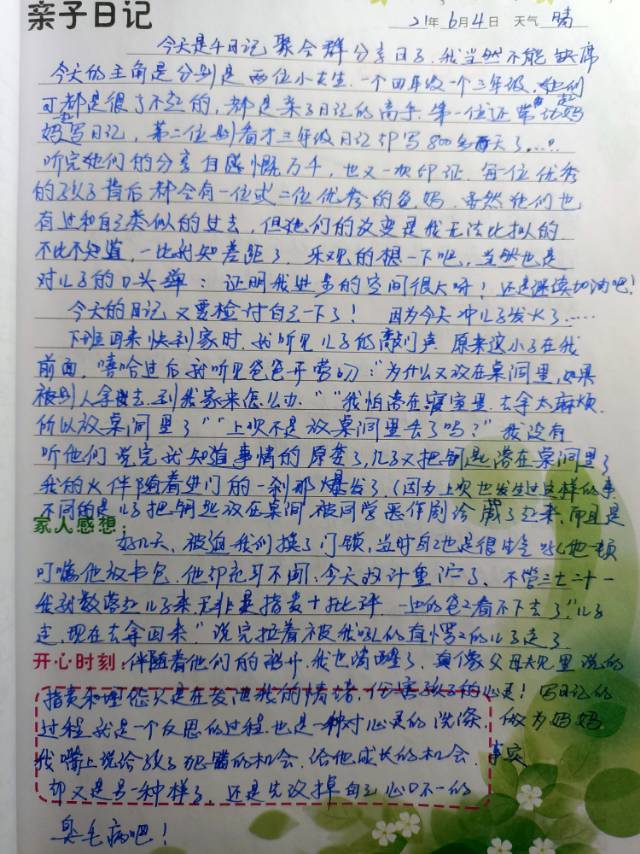 亲子日记
21年6月4日 天气 晴
今天是千日记聚会群分享日了.我当然不能缺席
今天的主角是分别是两位小大生.一个四年级一个三年级.他们
可都是很了不起的,都是亲子日记的高手.第一位还带动妈
妈写日记,第二位别看才三年级日记却写800多天了......
听完他们的分享自感慨万千,也又一次印证.每一位优秀
的孩子背后都会有一位或二位优秀的爸妈.虽然他们也
有过和自己类似的过去,但他们的改变是我无法比拟的.
不比不知道,一比才知差距了.乐观的想一下吧,当然也是
对儿子的口头禅:证明我进步的空间很大呀!还是继续加油吧!
今天的日记又要检讨自己一下了!因为今天冲儿子发火了......
下班回来快到家时.我听见儿子的敲门声原来这小子在我
前面,嘻哈过后我听见爸爸开营的:"为什么又放在桌洞里,如果
被别人拿去到我家来怎么办.""我怕落在寝室里.去拿太麻烦.
所以放桌洞里了""上次不是放桌洞里丢了吗?"我没有
听他们说完我知道事情的原委了,儿子又把钥匙落在桌洞里了
我的火伴随着进门的一刹那爆发了.(因为上次也发生过这样的事
不同的是儿子把钥匙放在桌洞被同学恶作剧给藏了起来,而且是
家人感想:
好几天,被迫我们换了门锁,当时自己也是很生气 他一顿
叮嘱他放书包.他却充耳不闻.今天的计重 了.不管三七二十一
我就数落起儿子来.无非是指责+批评.一边的爸爸看不下去了."儿子
走.现在去拿回来"说完拉着被我吼的有愣愣的儿子走了
开心时刻:
伴随着他们的离开,我也清醒了.真像父母大见里说的
指责和埋怨只是在发泄我的情绪,伤害孩子的心灵!写日记的
过程就是一个反思的过程.也是一种对心灵的洗涤.做为妈妈
我嘴上说给孩子犯错的机会.给他成长的机会.事实
却又是另一种样子,还是先改掉自己心口不一的
臭毛病吧!